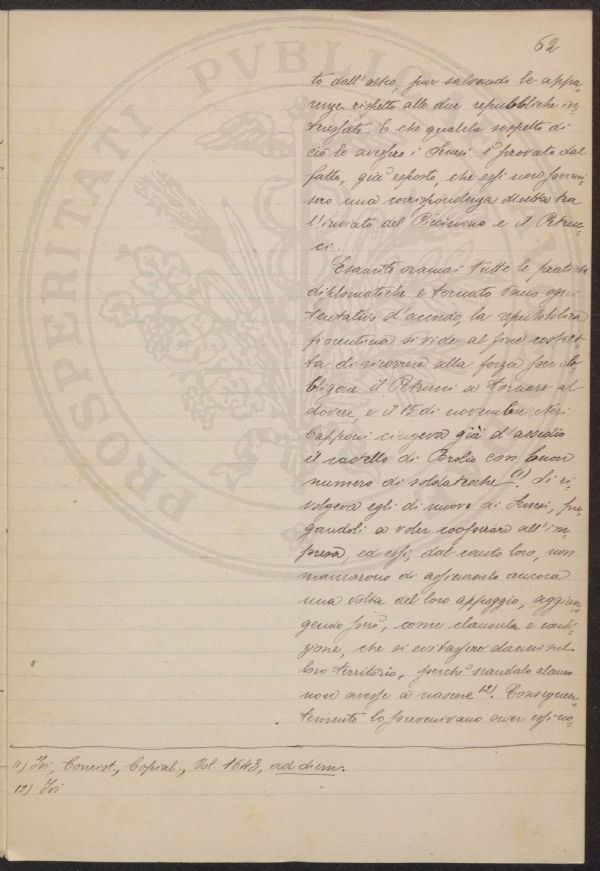 62
to dall'altro, pur salvando le appa-
renze rispetto alle due repubbliche in-
teressate. E che qualche sospetto di
ciò lo avessero i Senesi è provato dal
fatto, già esposto, che essi non permi-
sero una corrispondenza diretta tra
l'inviato del Piccinino e il Petruc-
ci.
Esaurite oramai tutte le pratiche
diplomatiche e tornato vano ogni
tentativo d'accordo, la repubblica
fiorentina si vide al fine costret-
ta di ricorrere alla forza per ob-
bligare il Petrucci a tornare al
dovere, e il 15 di novembre Neri
Capponi cingeva già d'assedio
il castello di Brolio con buon
numero di soldatesche (1). Si ri-
volgeva egli di nuovo ai Senesi, pre-
gandoli a voler cooperare all'im-
presa, ed essi, dal canto loro, non
mancarono di assicurarlo ancora
una volta del loro appoggio, aggiun-
gendo però, come clausula e condi-
zione, che si evitassero danni nel
loro territorio, perchè scandalo alcuno
non avesse a nascere (2). Conseguen-
temente lo prevenivano aver essi
(1) Ivi, Concist., Copial., Vol. 1643, ad diem.
(2) Ivi
PROSPERITATI PVBLICAE